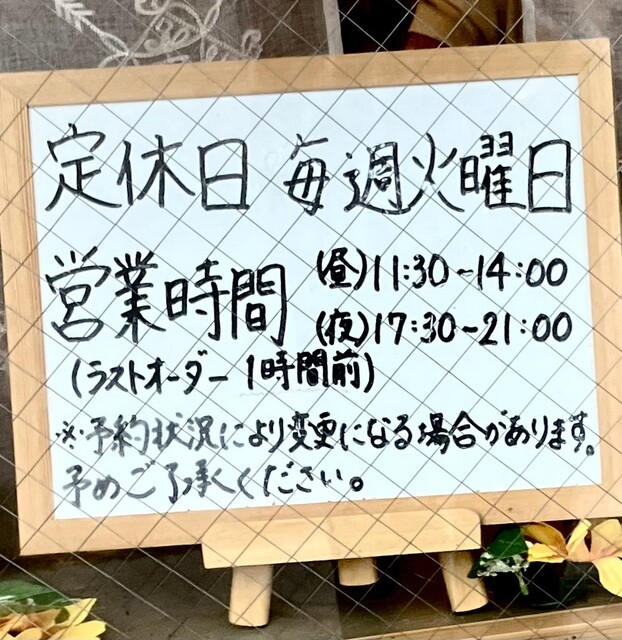 定休日 毎週火曜日
営業時間 (昼)11:30-14:00
(夜)17:30-21:00
(ラストオーダー 1時間前)
※予約状況により変更になる場合があります。
予めご了承ください。